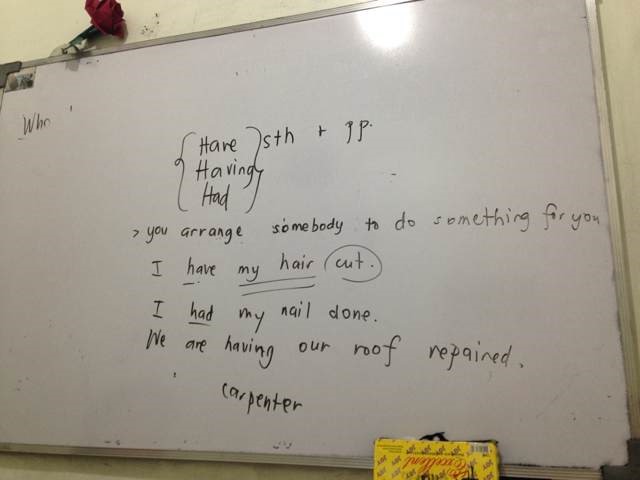 Who
Have
Having
Had
sth + pp.
> you arrange somebody to do something for you
I have my hair cut.
I had my nail done.
We are having our roof repaired.
carpenter
excellent